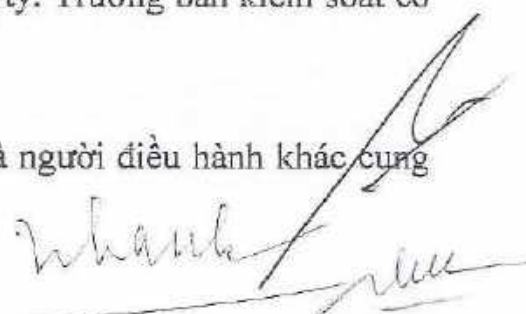 ty. Trưởng ban kiểm soát có
à người điều hành khác cung